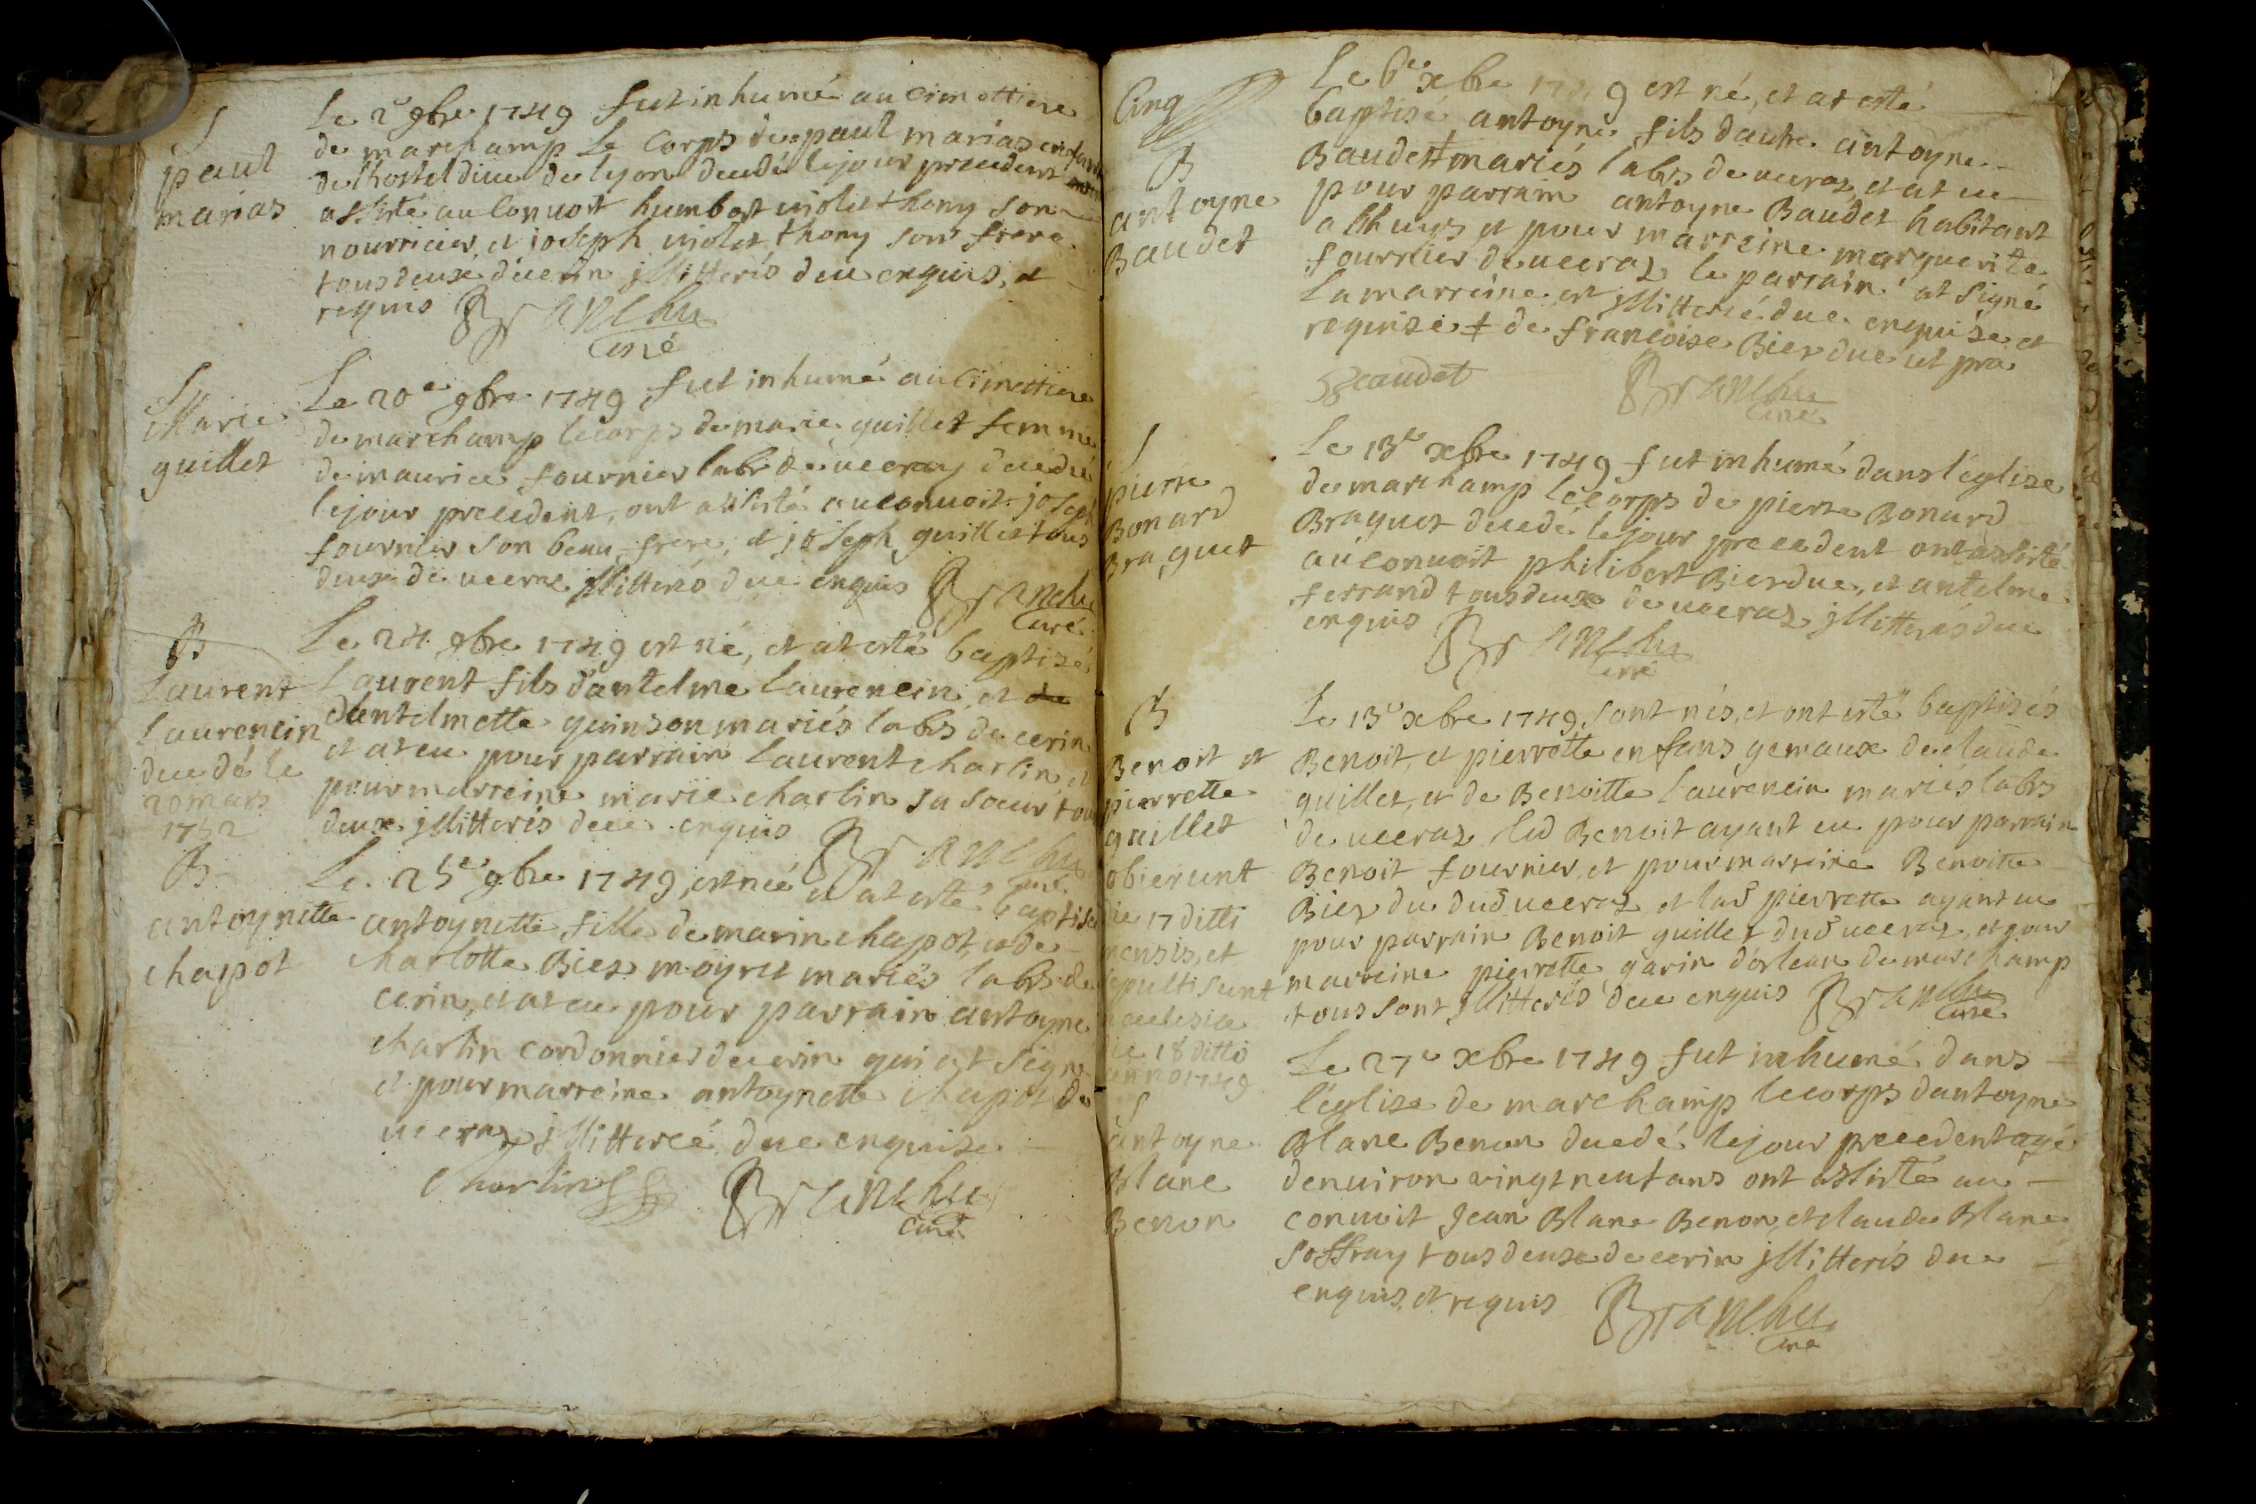 S
paul
marias
Le 2e 9bre 1749 fut inhumé au cimettiere
de marchamp le corps de paul marias enfant
de lhostel dieu de lyon decedé le jour precedent
assisté au convoit humbert violet thony son
nourricier, et joseph violet thony son frere
tous deux de cerin jllitterés deue enquis, et
requis Branchu
curé
S
Marie
guillet
Le 20e 9bre 1749 fut inhumé au cimettiere
de marchamp le corps de marie guillet femme
de maurice fournier labr de veeray decedée
le jour precedent, ont assisté au convoit joseph
fournier son beau frere, et joseph guillet tous
deux de jllitterés due enquis Branchu
Curé
B
Laurent
laurencin
decedé le
20 mars
1752
Le 24 9bre 1749 est né, et at esté baptisé
Laurent fils dantelme laurencin, et de
dantelmette guinson mariés labrs de cerin
et at eu pour parrain laurent charlin et
pour marreine marie charlin sa soeur tous
deux jllitterés deue enquis Branchu
curé
B
antoynette
chapot
Le 25e 9bre 1749, est née et at esté baptisée
antoynette fille de marin chapot, et de
charlotte Biez moyret mariés labrs de
cerin, et at eu pour parrain antoyne
charlin cordonnier de cerin qui at signé
et pour marreine antoynette chapot de
veeraz jllitterée due enquise
Charlin Branchu
curé
Cinq
B
antoyne
Baudet
Le 6e xbre 1749 est né, et at esté
baptisé antoyne fils dautre antoyne
Baudet ‡ mariés labrs de veeraz, et at eu
pour parrain antoyne Baudet habitant
a lhuys, et pour marreine marguerite
fournier de veeraz le parrain at signé
la marreine est jllitterée due enquise et
requise ‡ de francoise Bierdue ut pra
Beaudet Branchu
curé
S
pierre
Bonard
Braquet
Le 13e xbre 1749 fut inhumé dans léglise
de marchamp le corps de pierre Bonard
Braquet decedé le jour precedent ont assisté
au convoit philibert Bierdue, et antelme
ferrand tous deux de veeraz jllitterés due
enquis Branchu
curé
B
Benoit et
pierrette
guillet
obierunt
die 17 ditti
mensis, et
sepulti sunt
in ecclesia
die 18 ditti
anno 1749
Le 13e xbre 1749, sont nés, et ont esté baptisés
Benoit, et pierrette enfans gemaux de claude
guillet, et de Benoitte laurencin mariés labrs
de veeraz, led Benoit ayant eu pour parrain
Benoit fournier, et pour marreine Benoitte
Bier du dud veeraz et lad pierrette ayant eu
pour parrain Benoit guillet dud veeraz, et pour
marreine pierrette garin dorlean de marchamp
tous sont jllitterés due enquis Branchu
curé
S
antoyne
Blanc
Benon
Le 27e xbre 1749 fut inhumé dans
léglise de marchamp le corps dantoyne
Blanc Benon decedé le jour precedent agé
denviron vingt neuf ans ont assisté au
convoit jean Blanc Benon, et claude Blanc
Soffray tous deux de cerin jllitterés due
enquis, et requis Branchu
curé